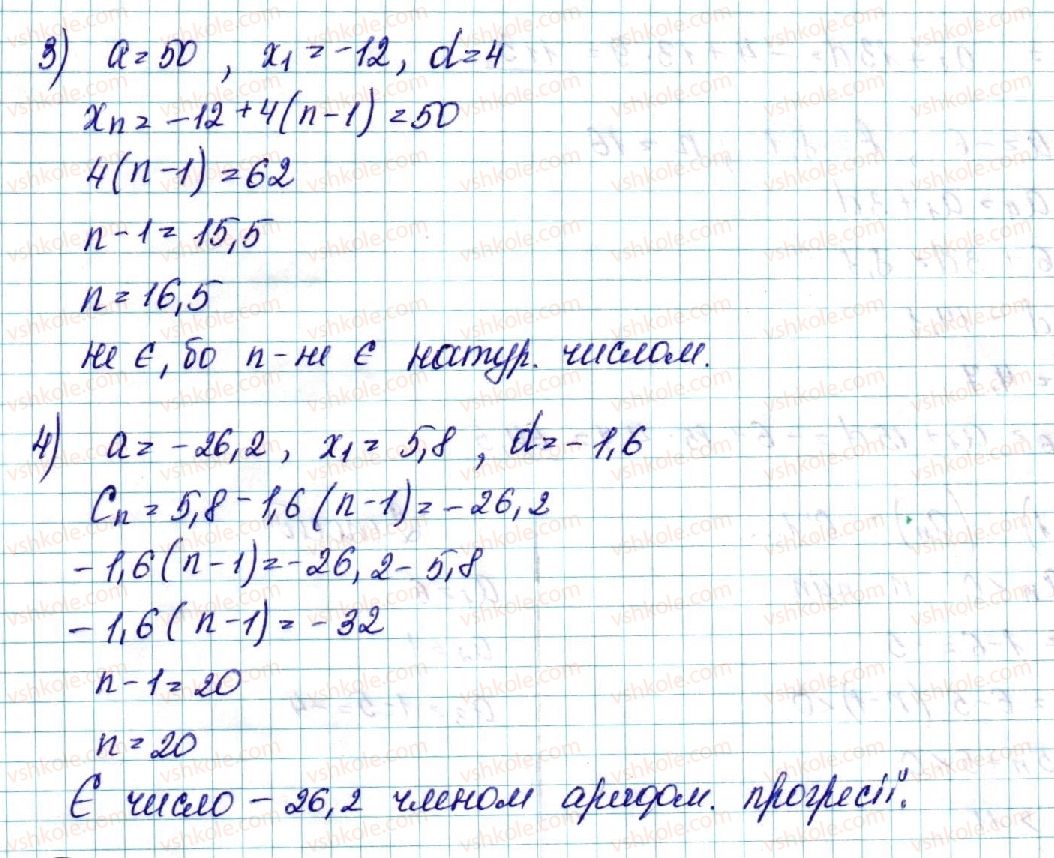 3) a = 50, x₁ = -12, d = 4
xₙ = -12 + 4(n-1) = 50
4(n-1) = 62
n-1 = 15,5
n = 16,5
не є, бо n - не є натур. числом.
4) a = -26,2, x₁ = 5,8, d = -1,6
Cₙ = 5,8 - 1,6(n-1) = -26,2
-1,6(n-1) = -26,2 - 5,8
-1,6(n-1) = -32
n-1 = 20
n = 20
Є число - 26,2 членом аридом. прогресії.